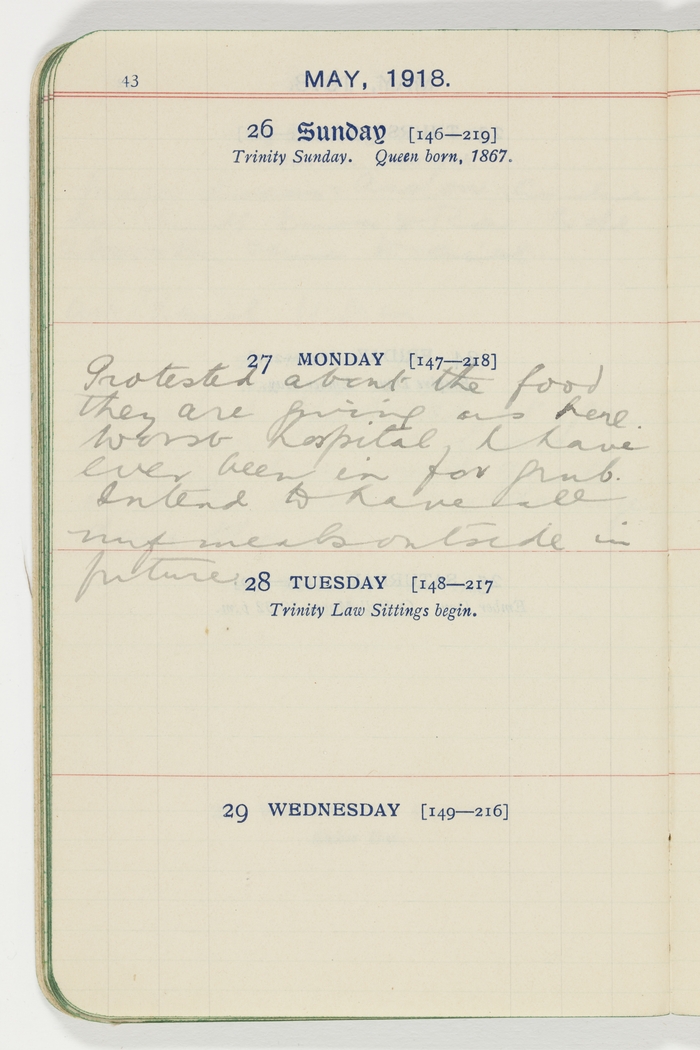 43
MAY, 1918.
26 Sunday [146—219]
Trinity Sunday. Queen born, 1867.
27 MONDAY [147—218]
Protested about the food
they are giving us here.
Worst hospital I have
ever been in for grub.
Intend to have all
my meals outside in
future.
28 TUESDAY [148—217
Trinity Law Sittings begin.
29 WEDNESDAY [149—216]